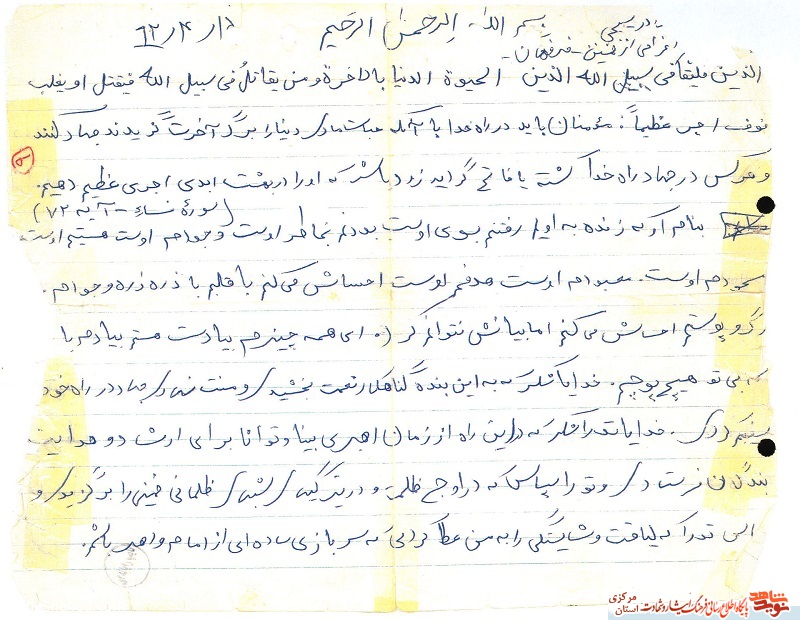 بسم الله الرحمن الرحیم
۶۲/۴/۱
اعزامی از خمین
الذین فلیقا فی سبیل الله الذین الحیوة الدنیا بالاخرة و من یقاتل فی سبیل الله فیقتل او یغلب
نوف اجر عظیماً: مؤمنان باید در راه خدا با آنکه حیات مادی دنیا را برگ آخرت گزیدند جهاد کنند
و هرکس در جهاد راه خدا کشته یا فاتح گردید زود باشد که او را در بهشت ابدی اجری عظیم دهیم.
(سوره نساء - آیه ۷۲)
بنام او که زنده به اویم رفتنم بسوی اوست بودنم بخاطر اوست وجودم اوست هستیم اوست
معبودم اوست هدفم اوست احساسش می‌کنم با قلبم با ذره ذره وجودم.
رگ و پوستم احساسش می‌کنم اما بیانش نتوانم کرد. ای همه چیزم بیادت هستم بیادم با
که بی تو هیچ پوچم. خدایا شکر که به این بنده گناهکار نعمت بخشیدی و منت نهادی جهاد در راه خود
خدایا تو را شکر که در این راه از زمان رهبری بینا و توانا برای ارشاد و هدایت
بندگان فرستادی و تو را سپاس که در اوج ظلمت و در تیرگیهای شبهای ظلمانی خمینی را برگزیدی و
تو را که لیاقت و شایستگی را به من عطا کردی که سربازی ساده ای از امام و اهل باشم.
نوید شاهد
پایگاه اطلاع رسانی فرهنگ ایثار و شهادت
استان مرکزی